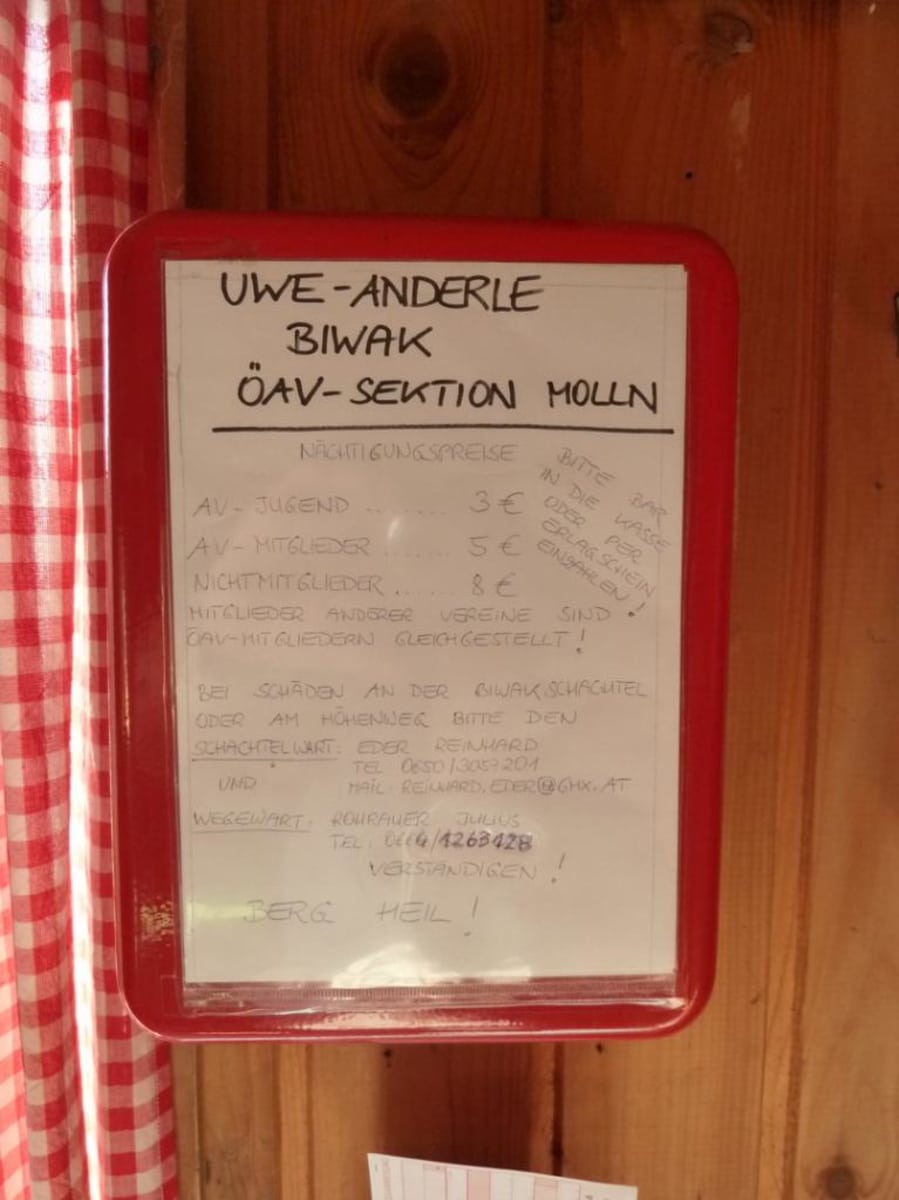 UWE-ANDERLE
BIWAK
ÖAV-SEKTION MOLLN
NÄCHTIGUNGSPREISE
AV-JUGEND ........ 3 €
AV-MITGLIEDER ....... 5 €
NICHTMITGLIEDER ...... 8 €
BITTE BAR
IN DIE KASSE
ODER PER
ERLAGSCHEIN
EINZAHLEN!
MITGLIEDER ANDERER VEREINE SIND
ÖAV-MITGLIEDERN GLEICHGESTELLT!
BEI SCHÄDEN AN DER BIWAKSCHACHTEL
ODER AM HÖHENWEG BITTE DEN
SCHACHTELWART: EDER REINHARD
TEL 0650/3059201
UND MAIL: REINHARD.EDER@GMX.AT
WEGEWART: ROHRAUER JULIUS
TEL: 0664/1263128
VERSTÄNDIGEN!
BERG HEIL!